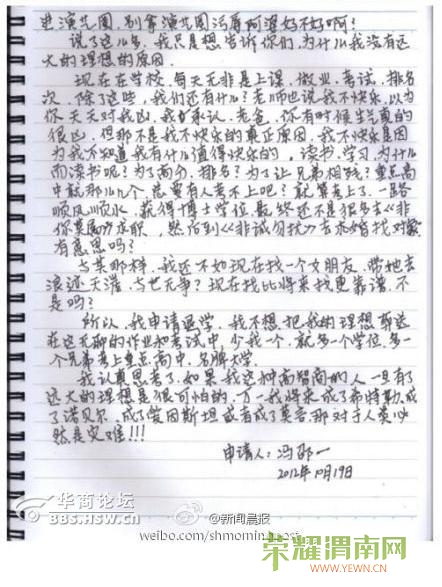 进演艺圈，别拿演艺圈污辱阿婆好不好啊！
说了这么多，我只是想告诉你们，为什么我没有远
大的理想的原因。
现在在学校，每天无非是上课、做业、考试、排名
次，除了这些，我们还有什么？老师也说我不快乐，以为
你天天对我凶，我承认，老爸，你有时候生气真的
很凶，但那不是我不快乐的真正原因，我不快乐是因
为我不知道我有什么值得快乐的，读书、学习，为什么
而读书呢？为了高分、排名？为了让兄弟相残？重点高
中就那么几个，总要有人考不上吧？就算考上了，一路
顺风顺水，获得博士学位，最终还不是很多去《非
你莫属》求职，然后到《非诚勿扰》去求婚找对象
有意思吗？
与其那样，我还不如现在找一个女朋友，带她去
浪迹天涯，与世无争？现在找比将来找更靠谱，不
是吗？
所以，我申请退学，我不想把我的理想葬送
在这无聊的作业和考试中，少我一个，就多一个学位，多一
个兄弟考上重点高中，名牌大学。
我认真思考了，如果我这种高智商的人一旦有了
远大的理想是很可怕的，万一我将来成了希特勒，成
了诺贝尔，成了爱因斯坦或者成了莫言，那对于人类必
然是灾难！！！
申请人：冯邵一
2012年10月19日
华商论坛
BBS.HSW.CN
@新闻晨报
weibo.com/shmorningpost
荣耀渭南网
WWW.YEWN.CN